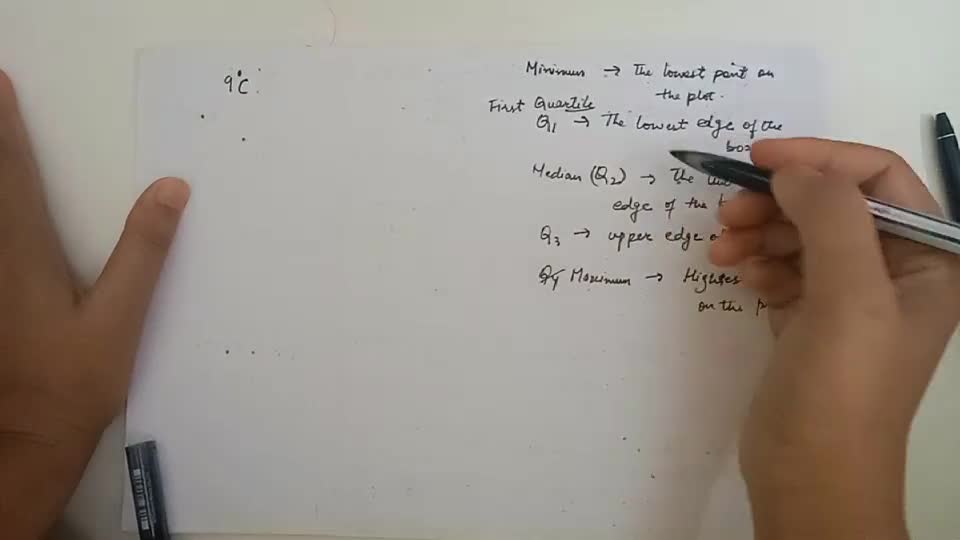 9°C
Minimum → The lowest point on
the plot.
First Quartile
Q1 → The lowest edge of the
Median (Q2) → The
edge of the
Q3 → upper edge
Maximum →
on the